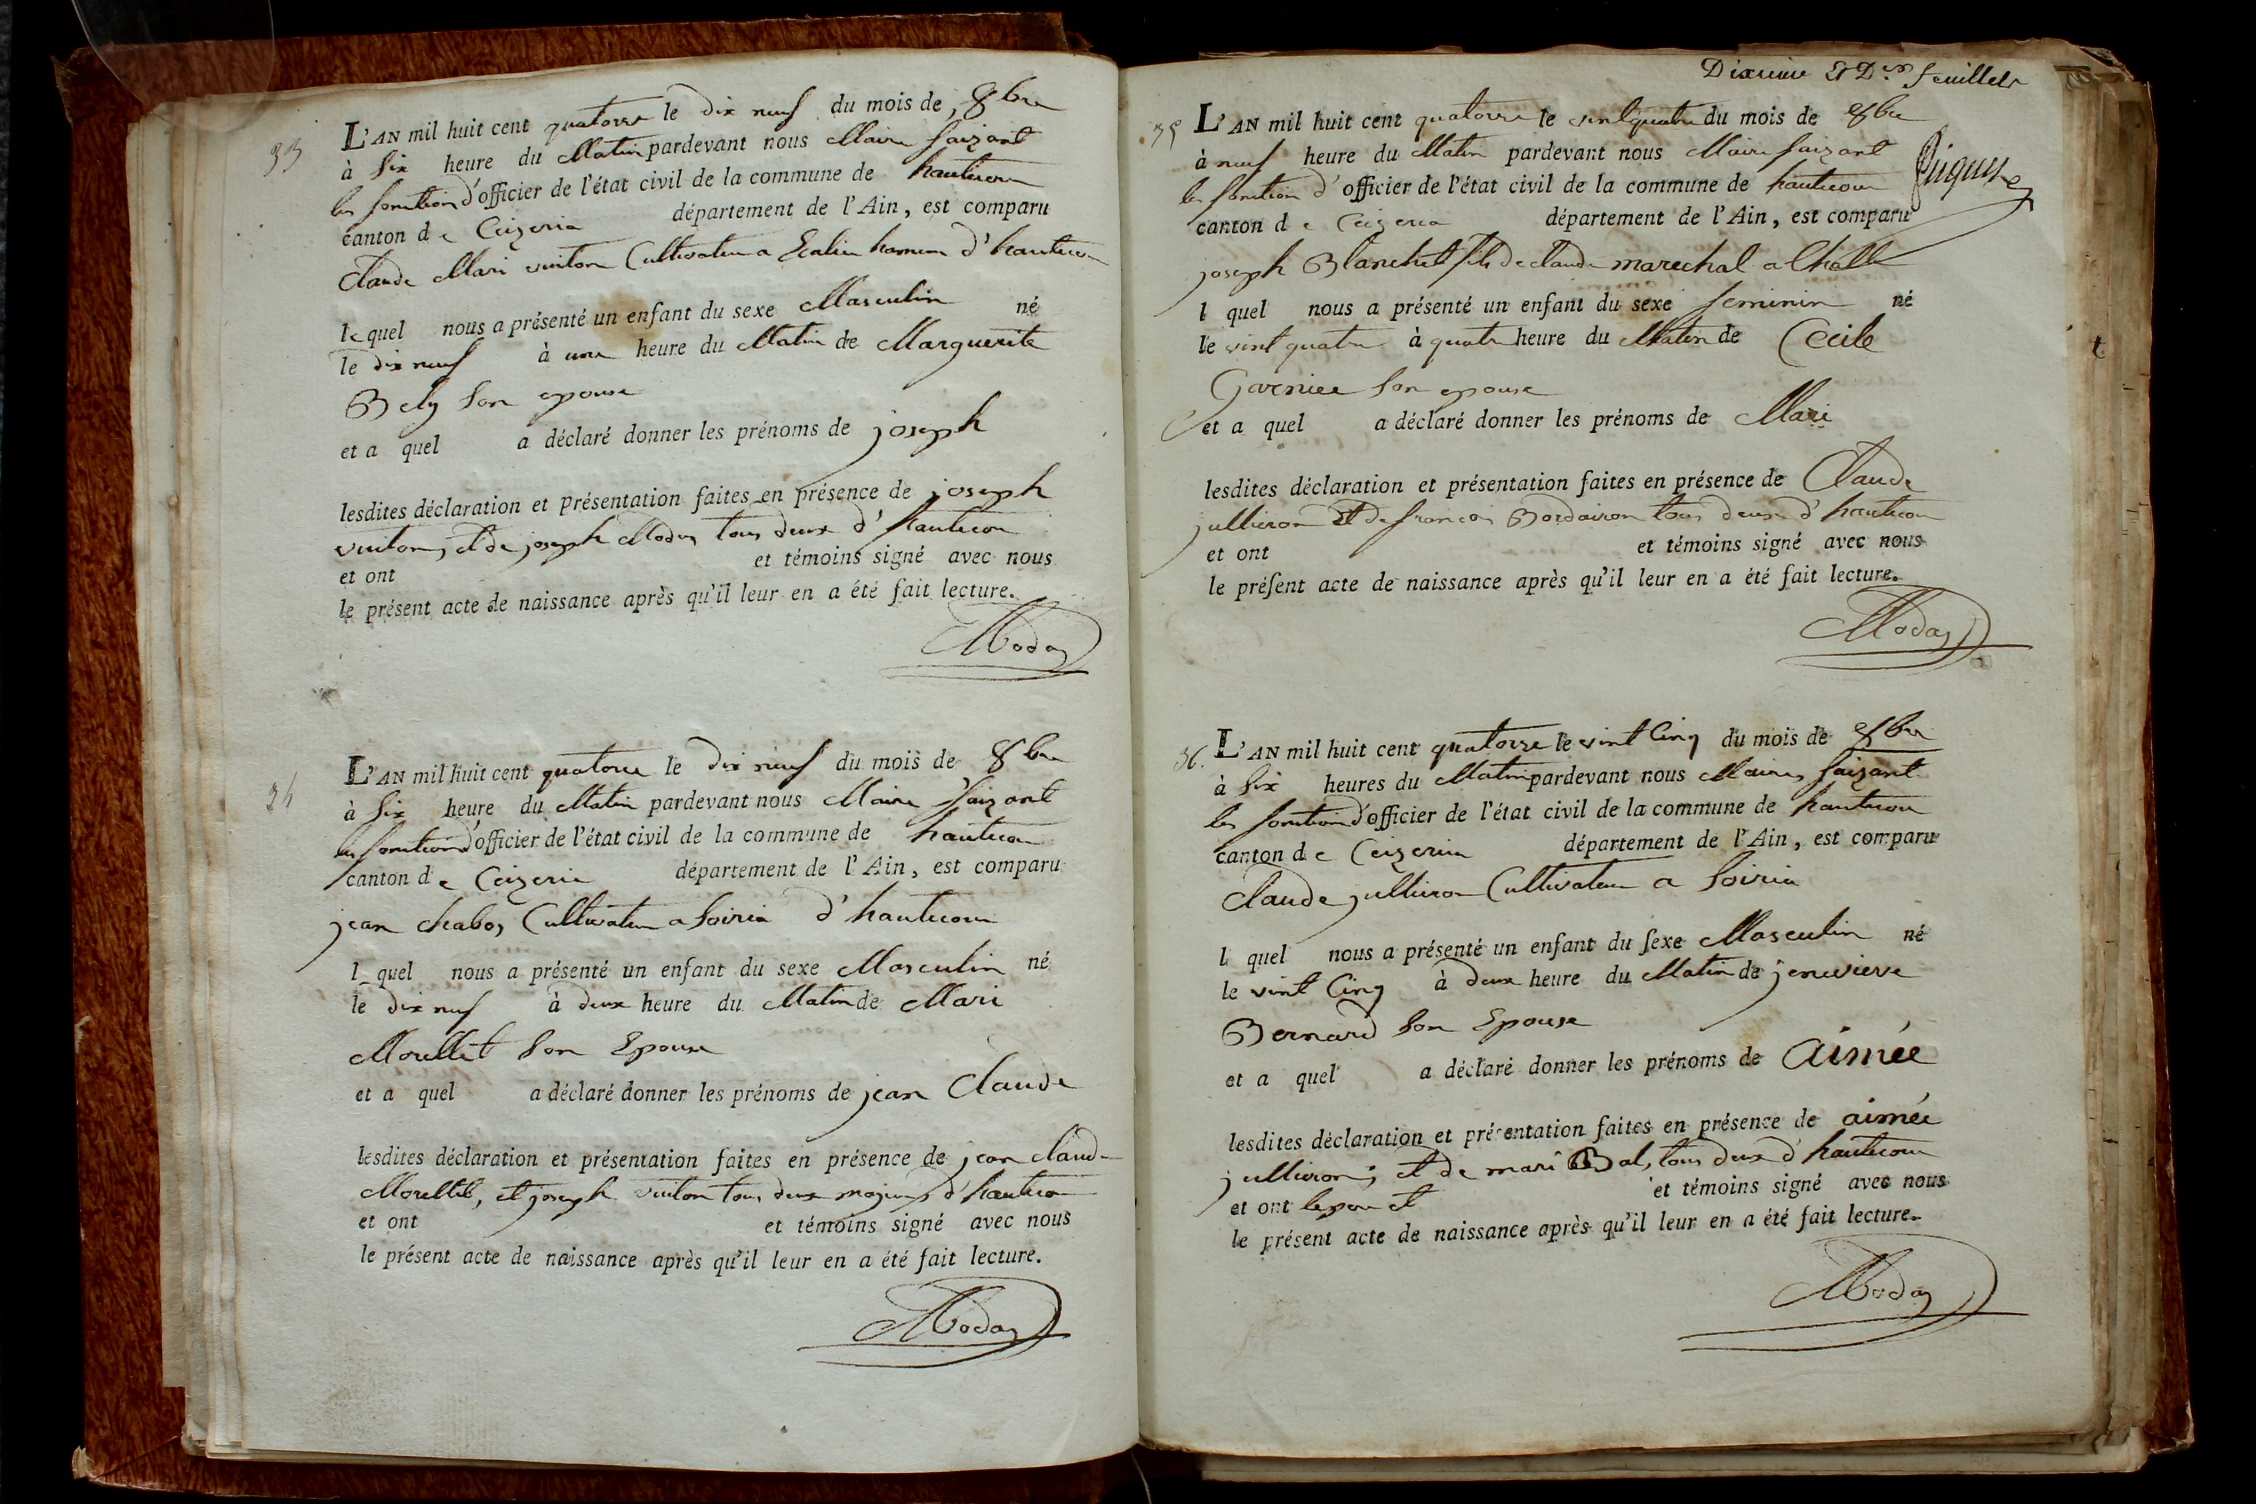 33
L'AN mil huit cent quatorze le dix neuf du mois de 8bre
à Six heure du Matin pardevant nous Maire faizant
les fonction d'officier de l'état civil de la commune de hautecour
canton de Ceizeria département de l'Ain, est comparu
Claude Mari vuiton Cultivateur a hameau d'hautecour
lequel nous a présenté un enfant du sexe Masculin né
le dix neuf à une heure du Matin de Marguerite
Bely Son epouse
et a quel a déclaré donner les prénoms de joseph
lesdites déclaration et présentation faites en présence de joseph
vuiton, et de joseph Modas tous deux d'hautecour
et ont et témoins signé avec nous
le présent acte de naissance après qu'il leur en a été fait lecture.
Modas
34
L'AN mil huit cent quatorze le dix neuf du mois de 8bre
à Six heure du Matin pardevant nous Maire faizant
les fonction d'officier de l'état civil de la commune de hautecour
canton de Ceizeria département de l'Ain, est comparu
jean chabos Cultivateur a Soiria d'hautecour
l quel nous a présenté un enfant du sexe Masculin né
le dix neuf à deux heure du Matin de Mari
Morellet Son Epouse
et a quel a déclaré donner les prénoms de jean Claude
lesdites déclaration et présentation faites en présence de jean claude
Morellet, et joseph vuiton tous deux majeurs d'hautecour
et ont et témoins signé avec nous
le présent acte de naissance après qu'il leur en a été fait lecture.
Modas
Dixieme Et Der feuillets
35
L'AN mil huit cent quatorze le vint quatre du mois de 8bre
à neuf heure du Matin pardevant nous Maire faizant
les fonction d'officier de l'état civil de la commune de hautecour
canton de Ceizeria département de l'Ain, est comparu
joseph Blanchet fils de claude marechal a Challe
l quel nous a présenté un enfant du sexe feminin né
le vint quatre à quatre heure du Matin de Cecile
Garnier Son epouse
et a quel a déclaré donner les prénoms de Mari
lesdites déclaration et présentation faites en présence de Claude
jullieron Et de francois Bordairon tous deux d'hautecour
et ont et témoins signé avec nous
le présent acte de naissance après qu'il leur en a été fait lecture.
Modas
36.
L'AN mil huit cent quatorze le vint Cinq du mois de 8bre
à Six heures du Matin pardevant nous Maire faizant
les fonction d'officier de l'état civil de la commune de hautecour
canton de Ceizeria département de l'Ain, est comparu
Claude jullieron Cultivateur a Soiria
l quel nous a présenté un enfant du sexe Masculin né
le vint Cinq à deux heure du Matin de jenevieve
Bernard Son Epouse
et a quel a déclaré donner les prénoms de Aimée
lesdites déclaration et présentation faites en présence de aimée
jullieron; et de mari Bal, tous deux d'hautecour
et ont et témoins signé avec nous
le présent acte de naissance après qu'il leur en a été fait lecture.
Modas